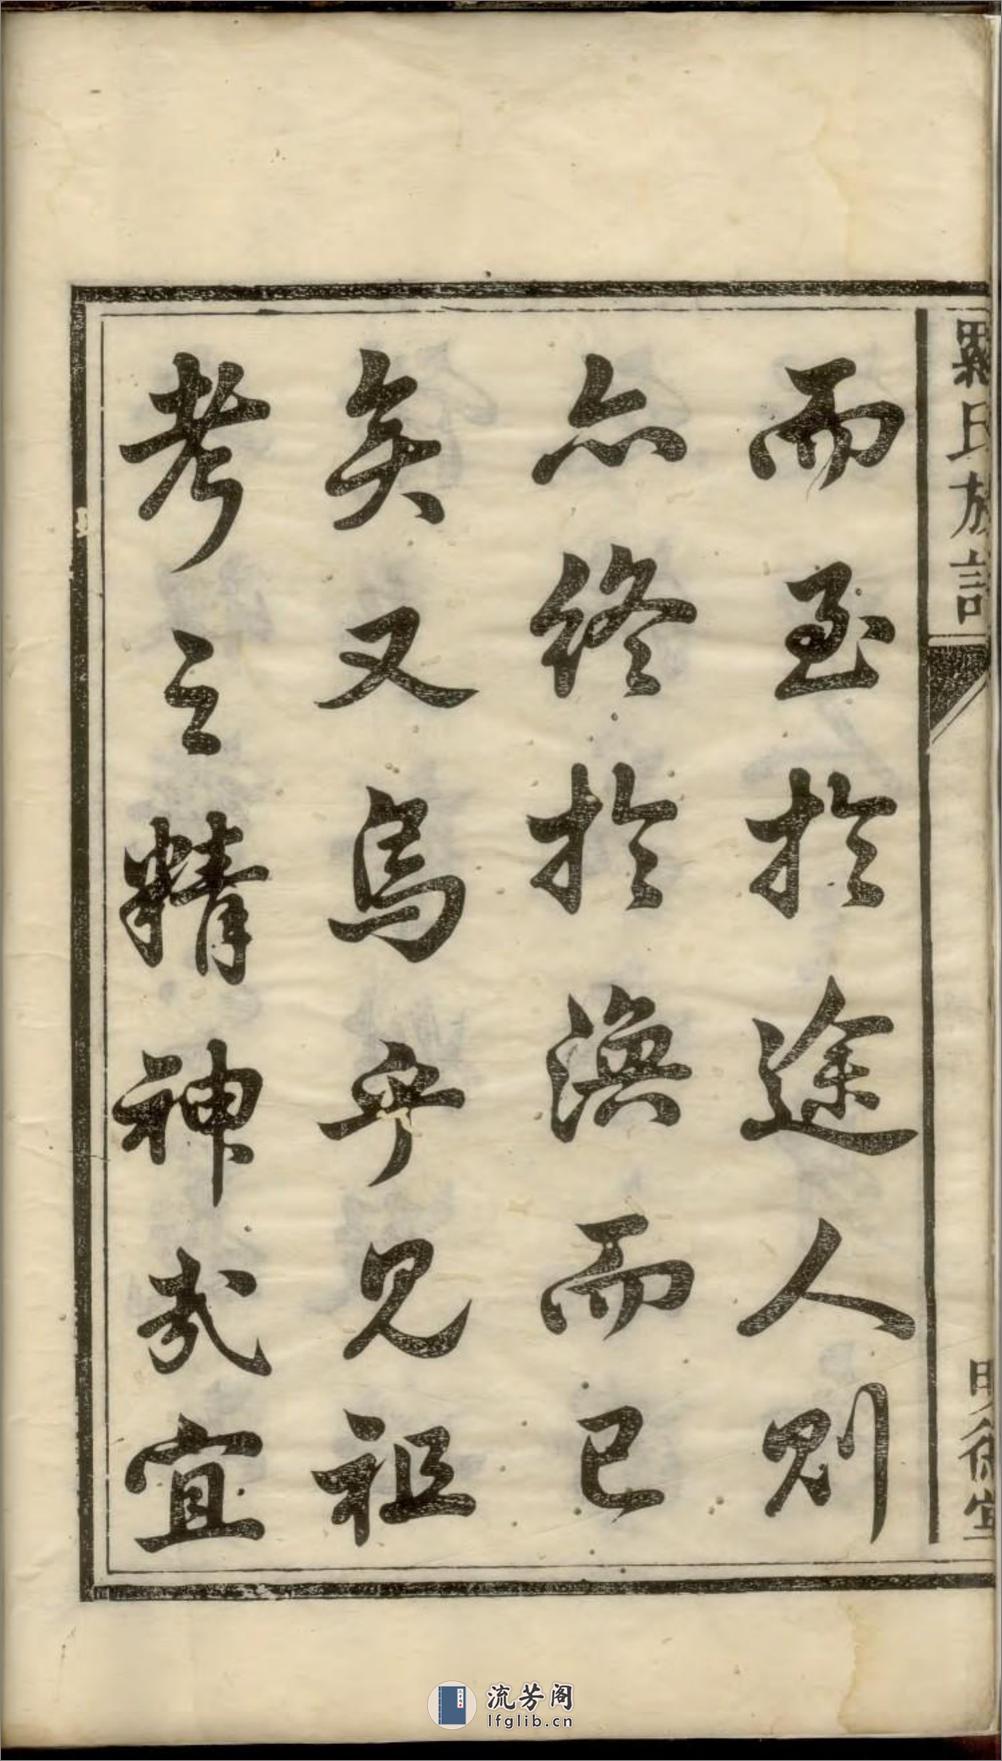 羅氏族譜
明德堂
而至於途人則
亦終於渙而已
矣又烏乎見祖
考之精神哉宜
流芳阁
lfglib.cn